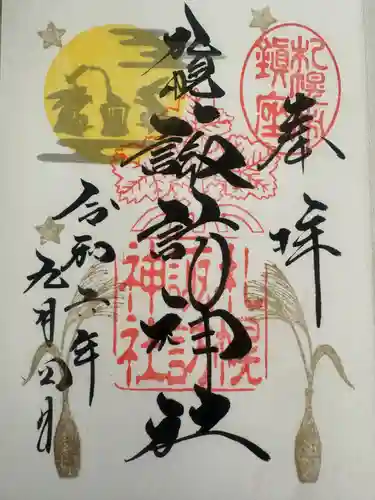 奉拝
札幌
諏訪神社
令和六年
九月四日
札幌
諏訪
神社
札幌
鎮座